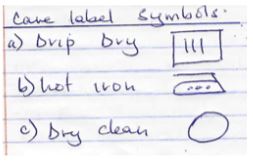 Care label symbols.
a) Drip Dry
b) hot iron
c) Dry clean